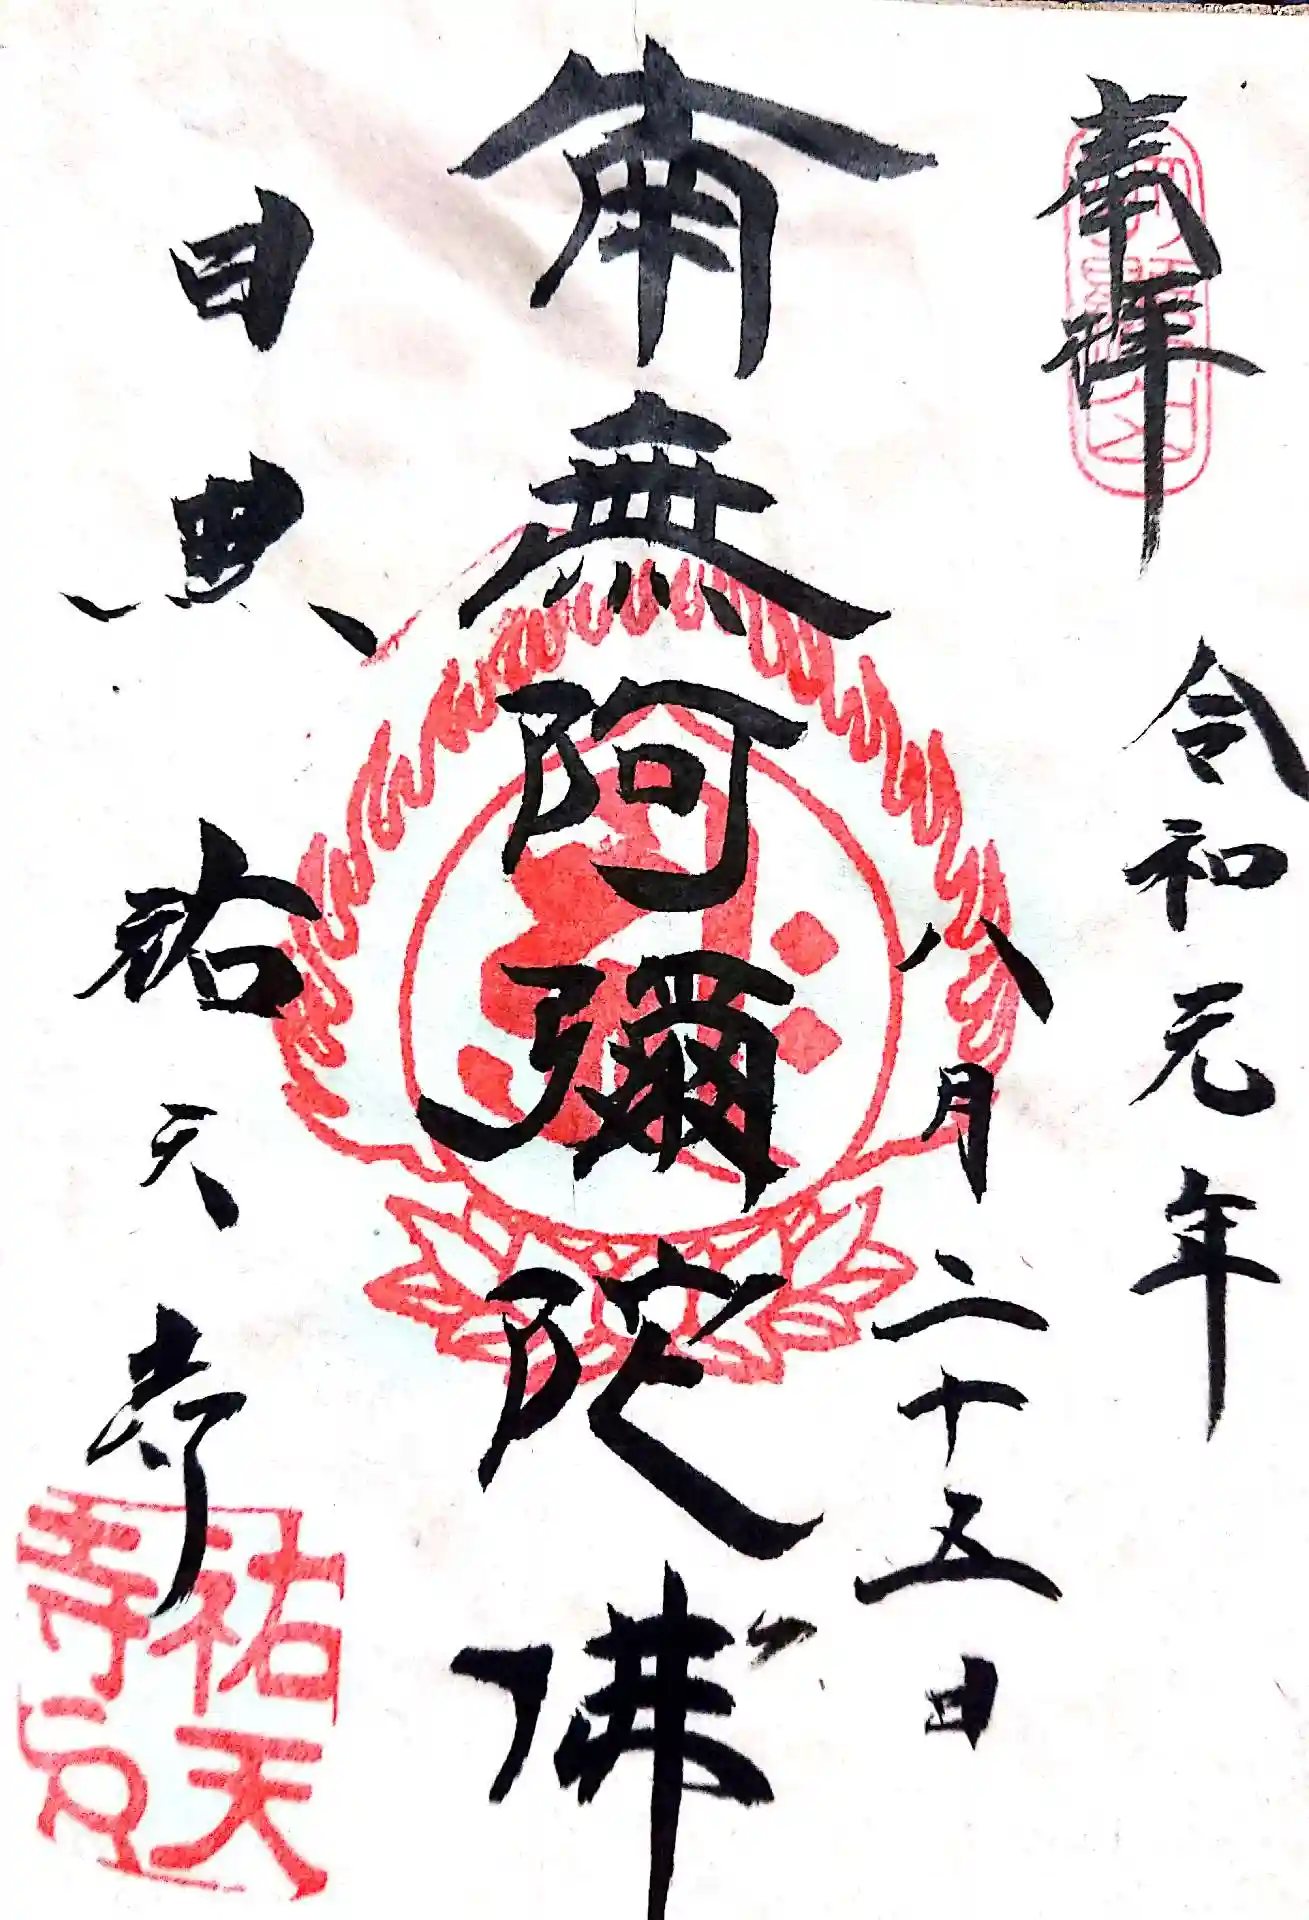 奉拝
令和元年
八月二十五日
南無阿彌陀佛
目黒
祐天寺
祐天
寺印